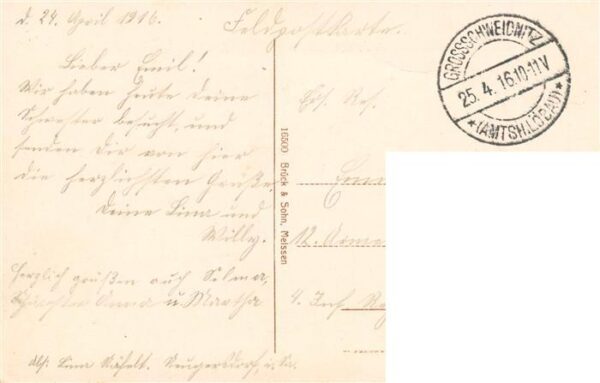 d. 24. April 1916.
Feldpostkarte.
Lieber Emil!
Wir haben heute Deine
Schwester besucht, und
senden Dir von hier
die herzlichsten Grüße.
Deine Lina und
Willy.
Herzlich grüßen auch Selma,
Anna u. Martha
Abs: Lina Neugersdorf, i. Sa.
16500 Brück & Sohn, Meissen
GROSSSCHWEIDNITZ
25. 4. 16. 10-11 V
* (AMTSH. LÖBAU) *
Ers. Res.
12. Armee
4. Inf. Reg